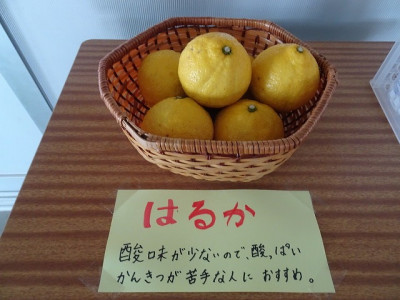 はるか
酸味が少ないので、酸っぱい
かんきつが苦手な人に おすすめ。